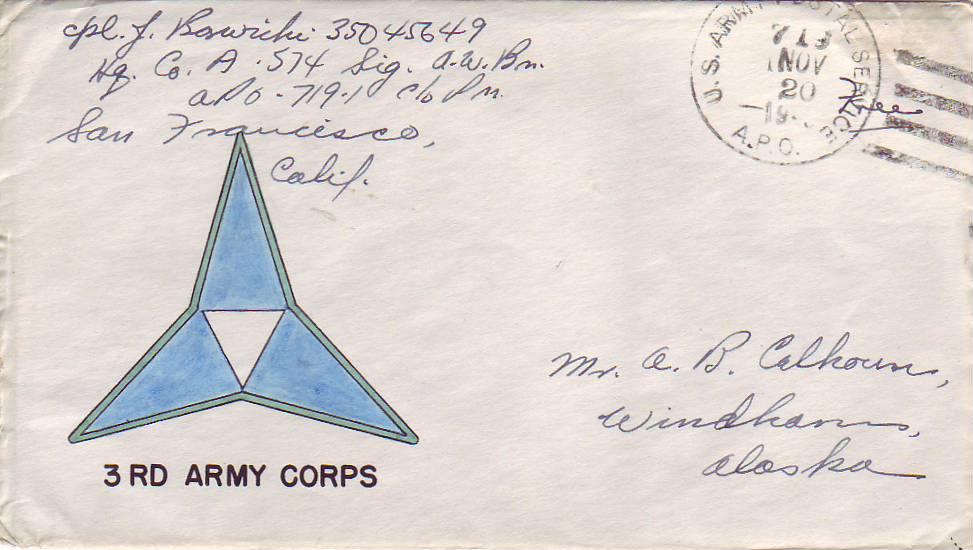 cpl. J. Bowicki 35045649
Hq. Co. A. 574 Sig. A.W. Bn.
APO-719-1 c/o P.M.
San Francisco,
Calif.
U.S. ARMY POSTAL SERVICE
719
NOV
20
A.P.O.
Free
Mr. A. B. Calhoun,
Windham,
Alaska
3RD ARMY CORPS